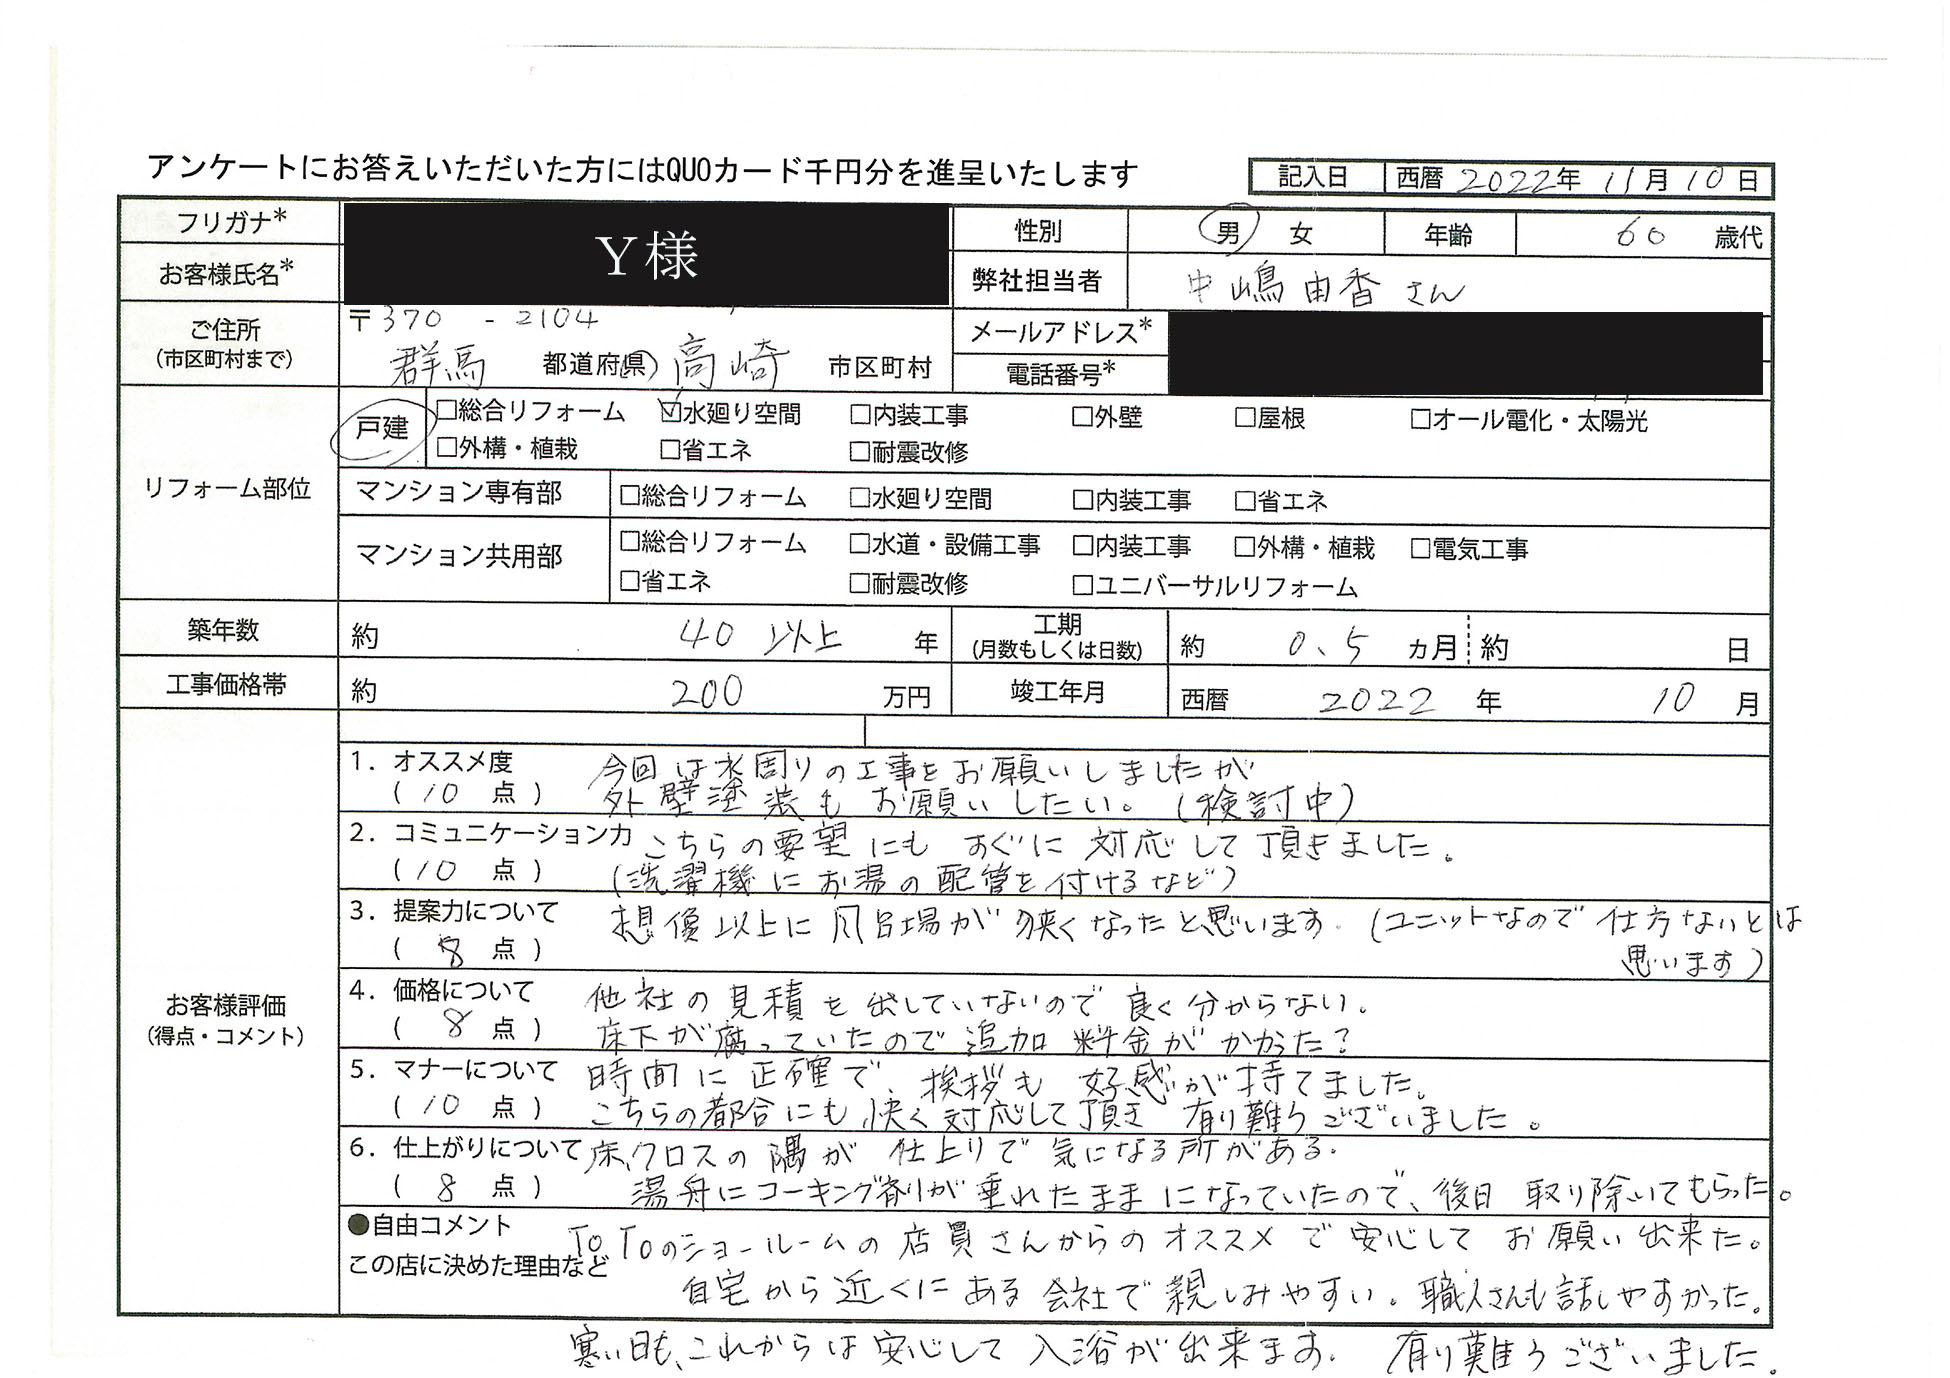 アンケートにお答えいただいた方にはQUOカード千円分を進呈いたします
記入日 西暦 2022年 11月 10日
フリガナ* Y様 性別 男 女 年齢 60 歳代
お客様氏名* 弊社担当者 中嶋由香さん
ご住所 〒370 - 2104 メールアドレス*
(市区町村まで) 群馬 都道府県 高崎 市区町村 電話番号*
リフォーム部位
戸建 □総合リフォーム ☑水廻り空間 □内装工事 □外壁 □屋根 □オール電化・太陽光
□外構・植栽 □省エネ □耐震改修
マンション専有部 □総合リフォーム □水廻り空間 □内装工事 □省エネ
マンション共用部 □総合リフォーム □水道・設備工事 □内装工事 □外構・植栽 □電気工事
□省エネ □耐震改修 □ユニバーサルリフォーム
築年数 約 40 以上 年 工期 (月数もしくは日数) 約 0.5 カ月 約 日
工事価格帯 約 200 万円 竣工年月 西暦 2022 年 10 月
お客様評価
(得点・コメント)
1. オススメ度 今回は水周りの工事をお願いしましたが
( 10 点 ) 外壁塗装もお願いしたい。(検討中)
2. コミュニケーション力 こちらの要望にもすぐに対応して頂きました。
( 10 点 ) (洗濯機にお湯の配管を付けるなど)
3. 提案力について 想像以上に風呂場が狭くなったと思います。(ユニットなので仕方ないとは
( 8 点 ) 思います)
4. 価格について 他社の見積を出していないので良く分からない。
( 8 点 ) 床下が腐っていたので追加料金がかかった?
5. マナーについて 時間に正確で、挨拶も好感が持てました。
( 10 点 ) こちらの都合にも快く対応して頂き有り難うございました。
6. 仕上がりについて 床、クロスの隅が仕上りで気になる所がある。
( 8 点 ) 湯舟にコーキング剤が垂れたままになっていたので、後日取り除いてもらった。
●自由コメント TOTOのショールームの店員さんからのオススメで安心してお願い出来た。
この店に決めた理由など 自宅から近くにある会社で親しみやすい。職人さんも話しやすかった。
寒い日も、これからは安心して入浴が出来ます。有り難うございました。